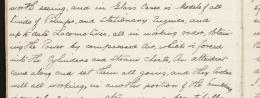 worth seeing, and in Glass Cases is Models of all
kinds of Pumps, and Stationary Engines, and
up to date Locomotives, all in working order, obtain-
ing the Power by compressed Air, which is forced
into the Cylinders and Steam Chests, An attendant
came along and set them all going, and they looked
well all working, in another position of the building